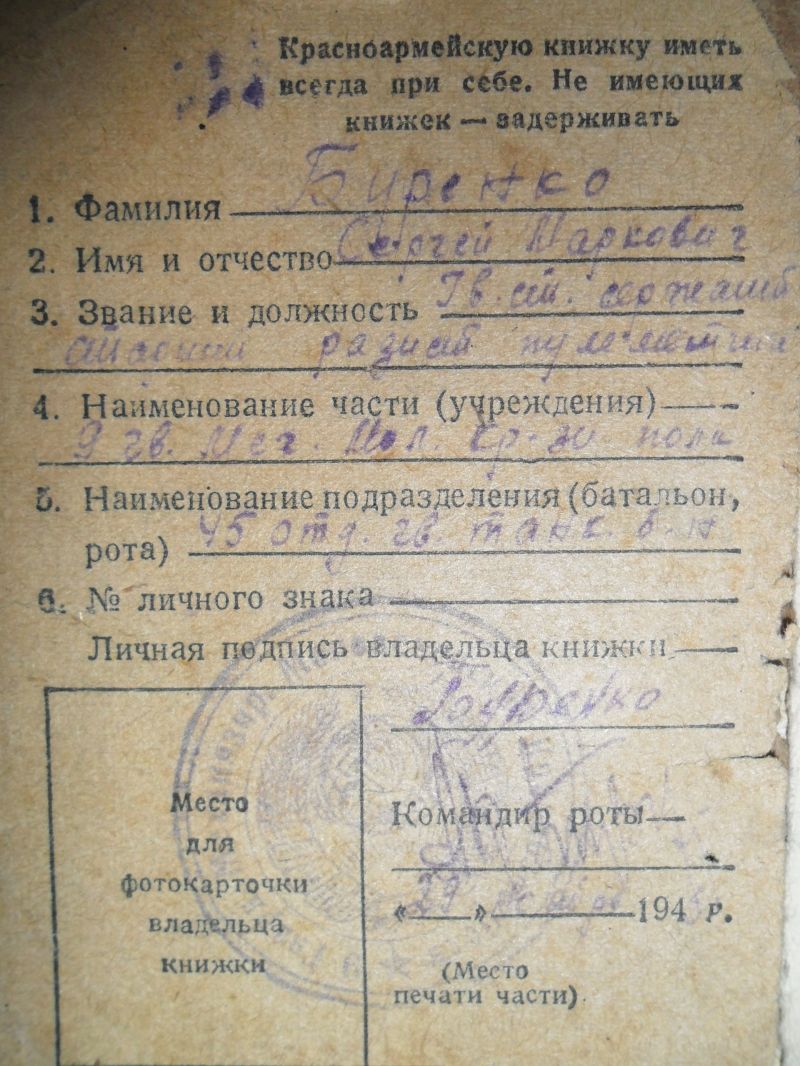 Красноармейскую книжку иметь
всегда при себе. Не имеющих
книжек — задерживать
1. Фамилия Биренко
2. Имя и отчество Сергей Маркович
3. Звание и должность Гв. ст. сержант
радист пулеметчик
4. Наименование части (учреждения)
9 гв. Мех. Мол. кр-зн полк
5. Наименование подразделения (батальон,
рота) 45 отд. гв. танк. б-н
6. № личного знака
Личная подпись владельца книжки
Биренко
Место
для
фотокарточки
владельца
книжки
Командир роты
« 29 » 194 г.
(Место
печати части)